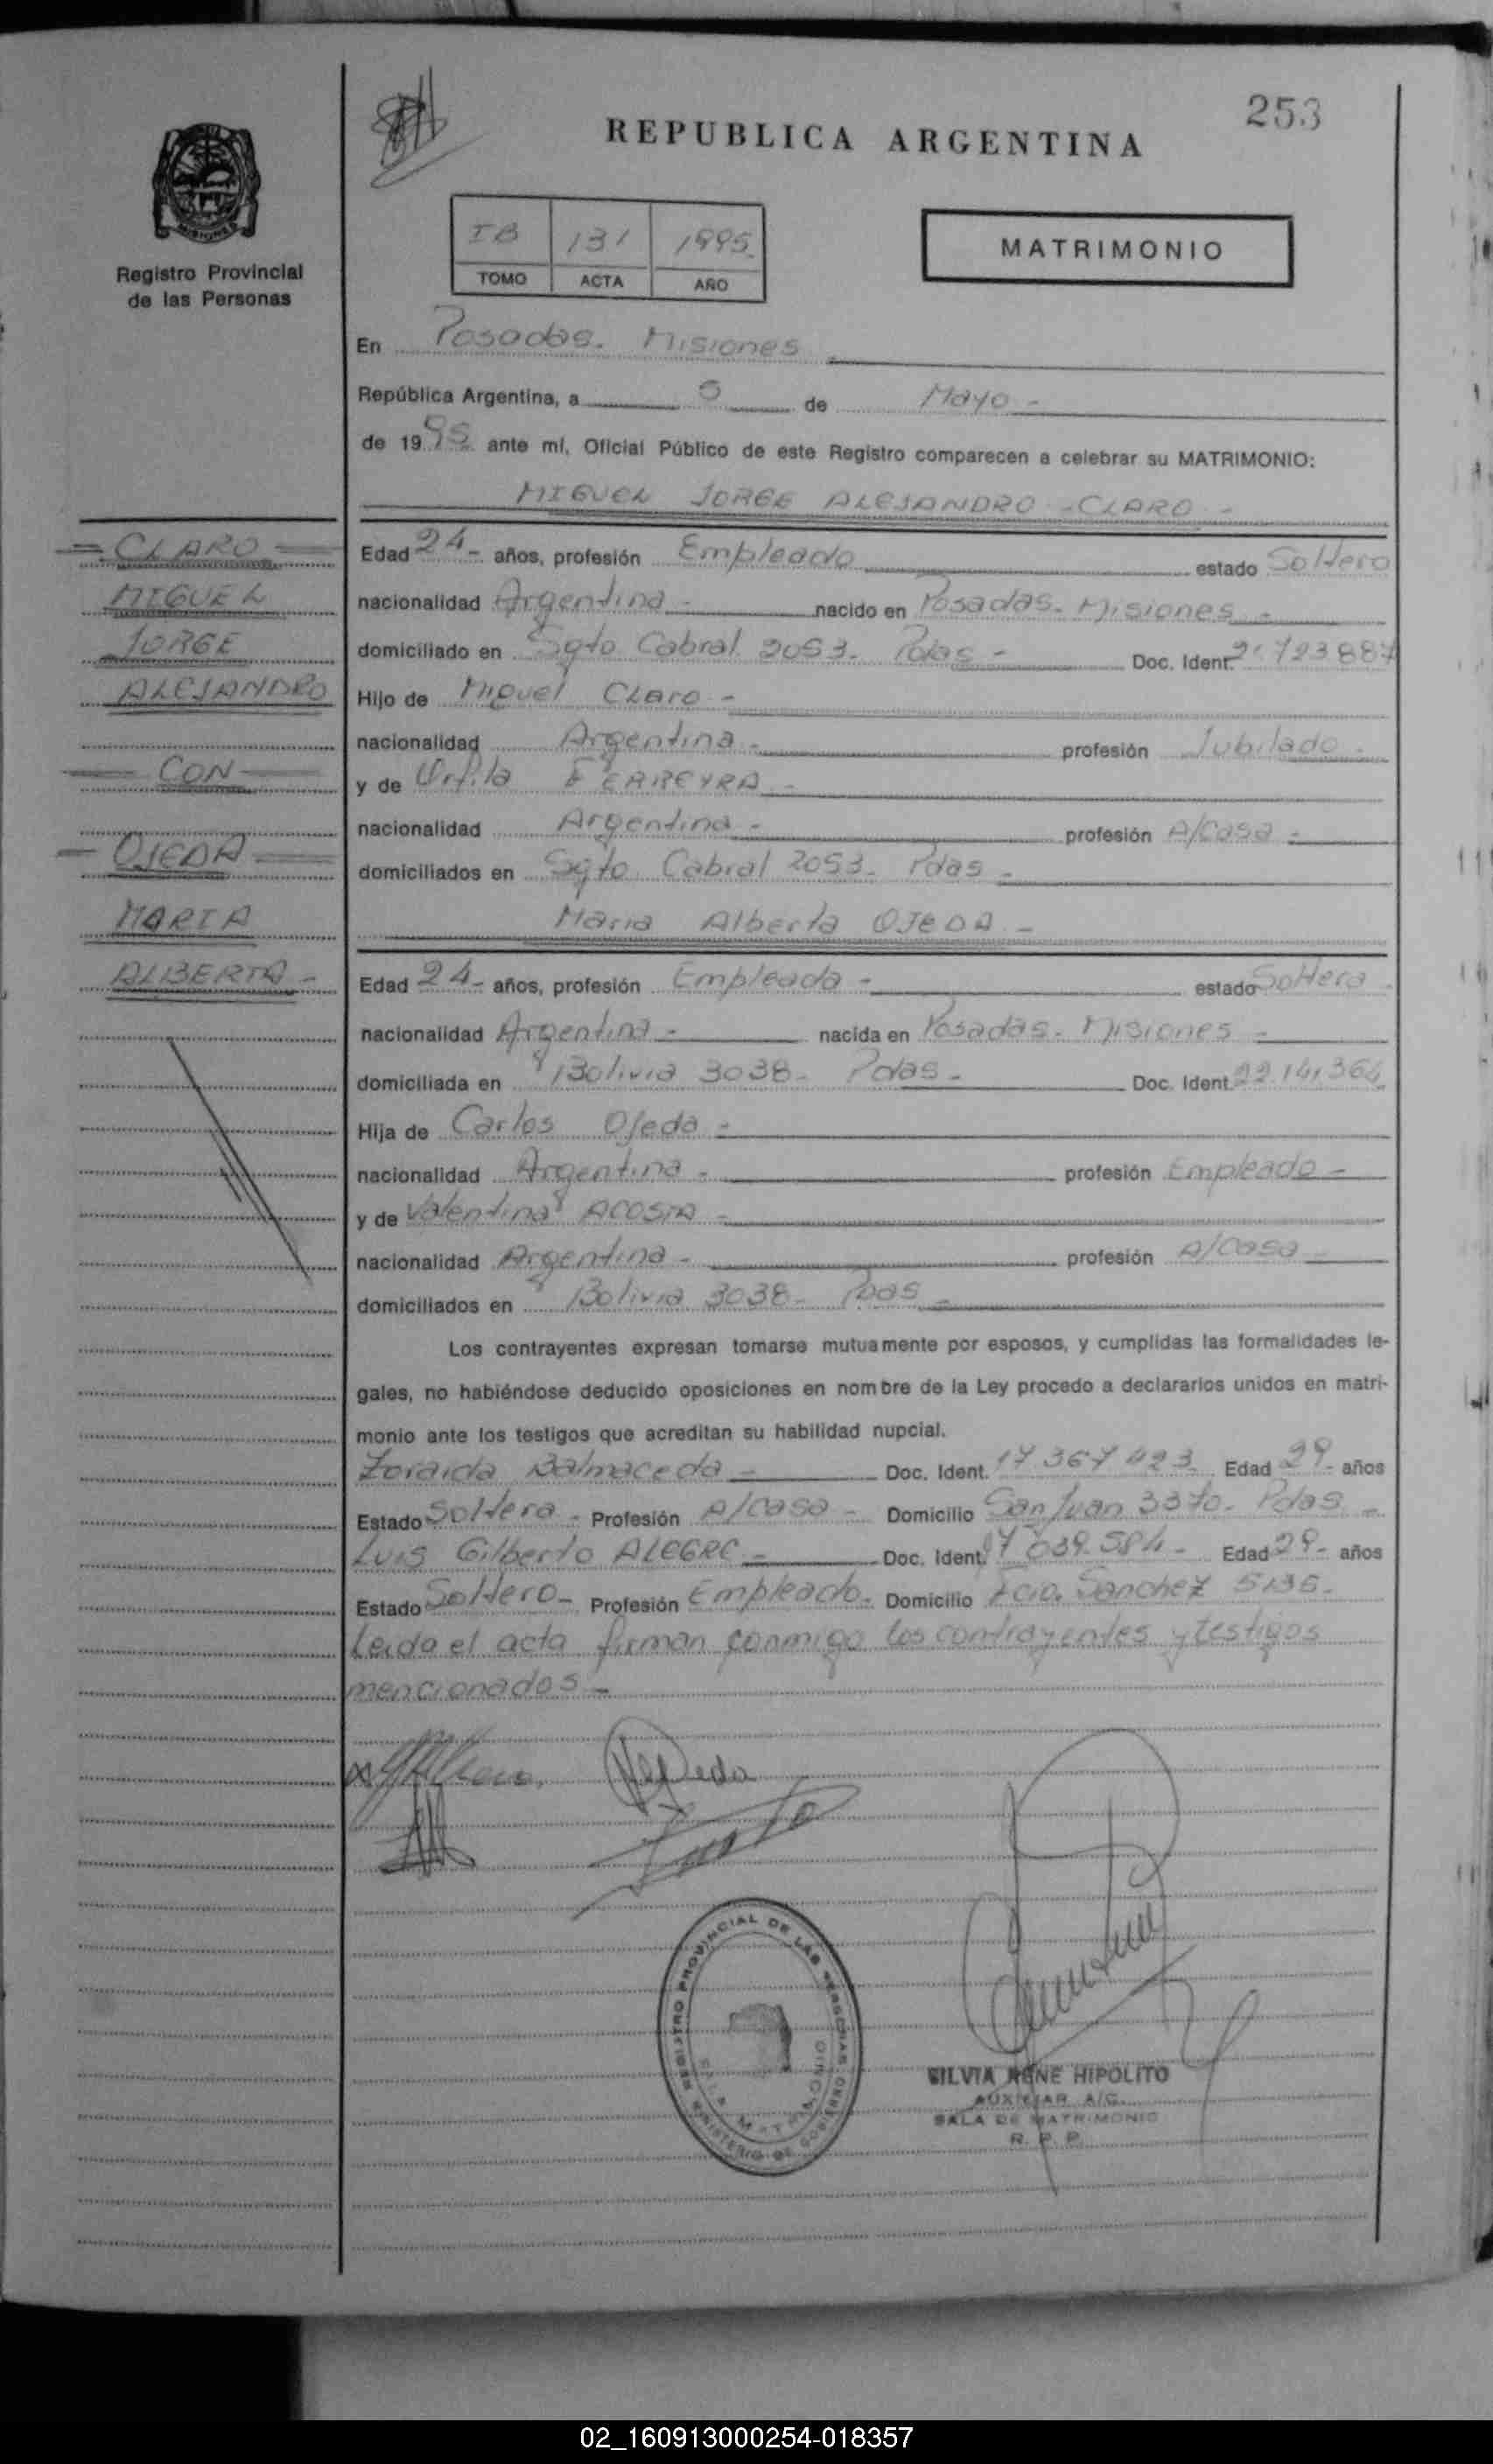 253
REPUBLICA ARGENTINA
MISIONES
Registro Provincial
de las Personas
IB 131 1995
TOMO ACTA AÑO
MATRIMONIO
En Posadas. Misiones
República Argentina, a 5 de Mayo -
de 1995 ante mí, Oficial Público de este Registro comparecen a celebrar su MATRIMONIO:
MIGUEL JORGE ALEJANDRO - CLARO -
CLARO
MIGUEL
JORGE
ALEJANDRO
CON
OJEDA
MARIA
ALBERTA -
Edad 24- años, profesión Empleado estado Soltero
nacionalidad Argentina - nacido en Posadas. Misiones -
domiciliado en Sgto Cabral 2053. Pdas - Doc. Ident. 21.723.887
Hijo de Miguel Claro -
nacionalidad Argentina - profesión Jubilado -
y de Orfila FERREYRA -
nacionalidad Argentina - profesión A/Casa -
domiciliados en Sgto Cabral 2053. Pdas -
Maria Alberta OJEDA -
Edad 24- años, profesión Empleada - estado Soltera
nacionalidad Argentina - nacida en Posadas. Misiones -
domiciliada en Bolivia 3038- Pdas - Doc. Ident.
Hija de Carlos Ojeda -
nacionalidad Argentina - profesión Empleado -
y de Valentina ACOSTA -
nacionalidad Argentina - profesión A/Casa -
domiciliados en Bolivia 3038- Pdas -
Los contrayentes expresan tomarse mutuamente por esposos, y cumplidas las formalidades le-
gales, no habiéndose deducido oposiciones en nombre de la Ley procedo a declararlos unidos en matri-
monio ante los testigos que acreditan su habilidad nupcial.
Zoraida Balmaceda - Doc. Ident. 17.367.423 Edad 29- años
Estado Soltera - Profesión A/Casa - Domicilio San Juan 3370- Pdas -
Luis Gilberto ALEGRE - Doc. Ident. 17.039.584- Edad 29- años
Estado Soltero- Profesión Empleado- Domicilio Fcio. Sanchez 5135-
Leida el acta firman conmigo los contrayentes y testigos
mencionados -
REGISTRO PROVINCIAL DE LAS PERSONAS
MINISTERIO DE GOBIERNO
SILVIA RENE HIPOLITO
AUXILIAR A/C.
SALA DE MATRIMONIO
R. P. P.
02_160913000254-018357